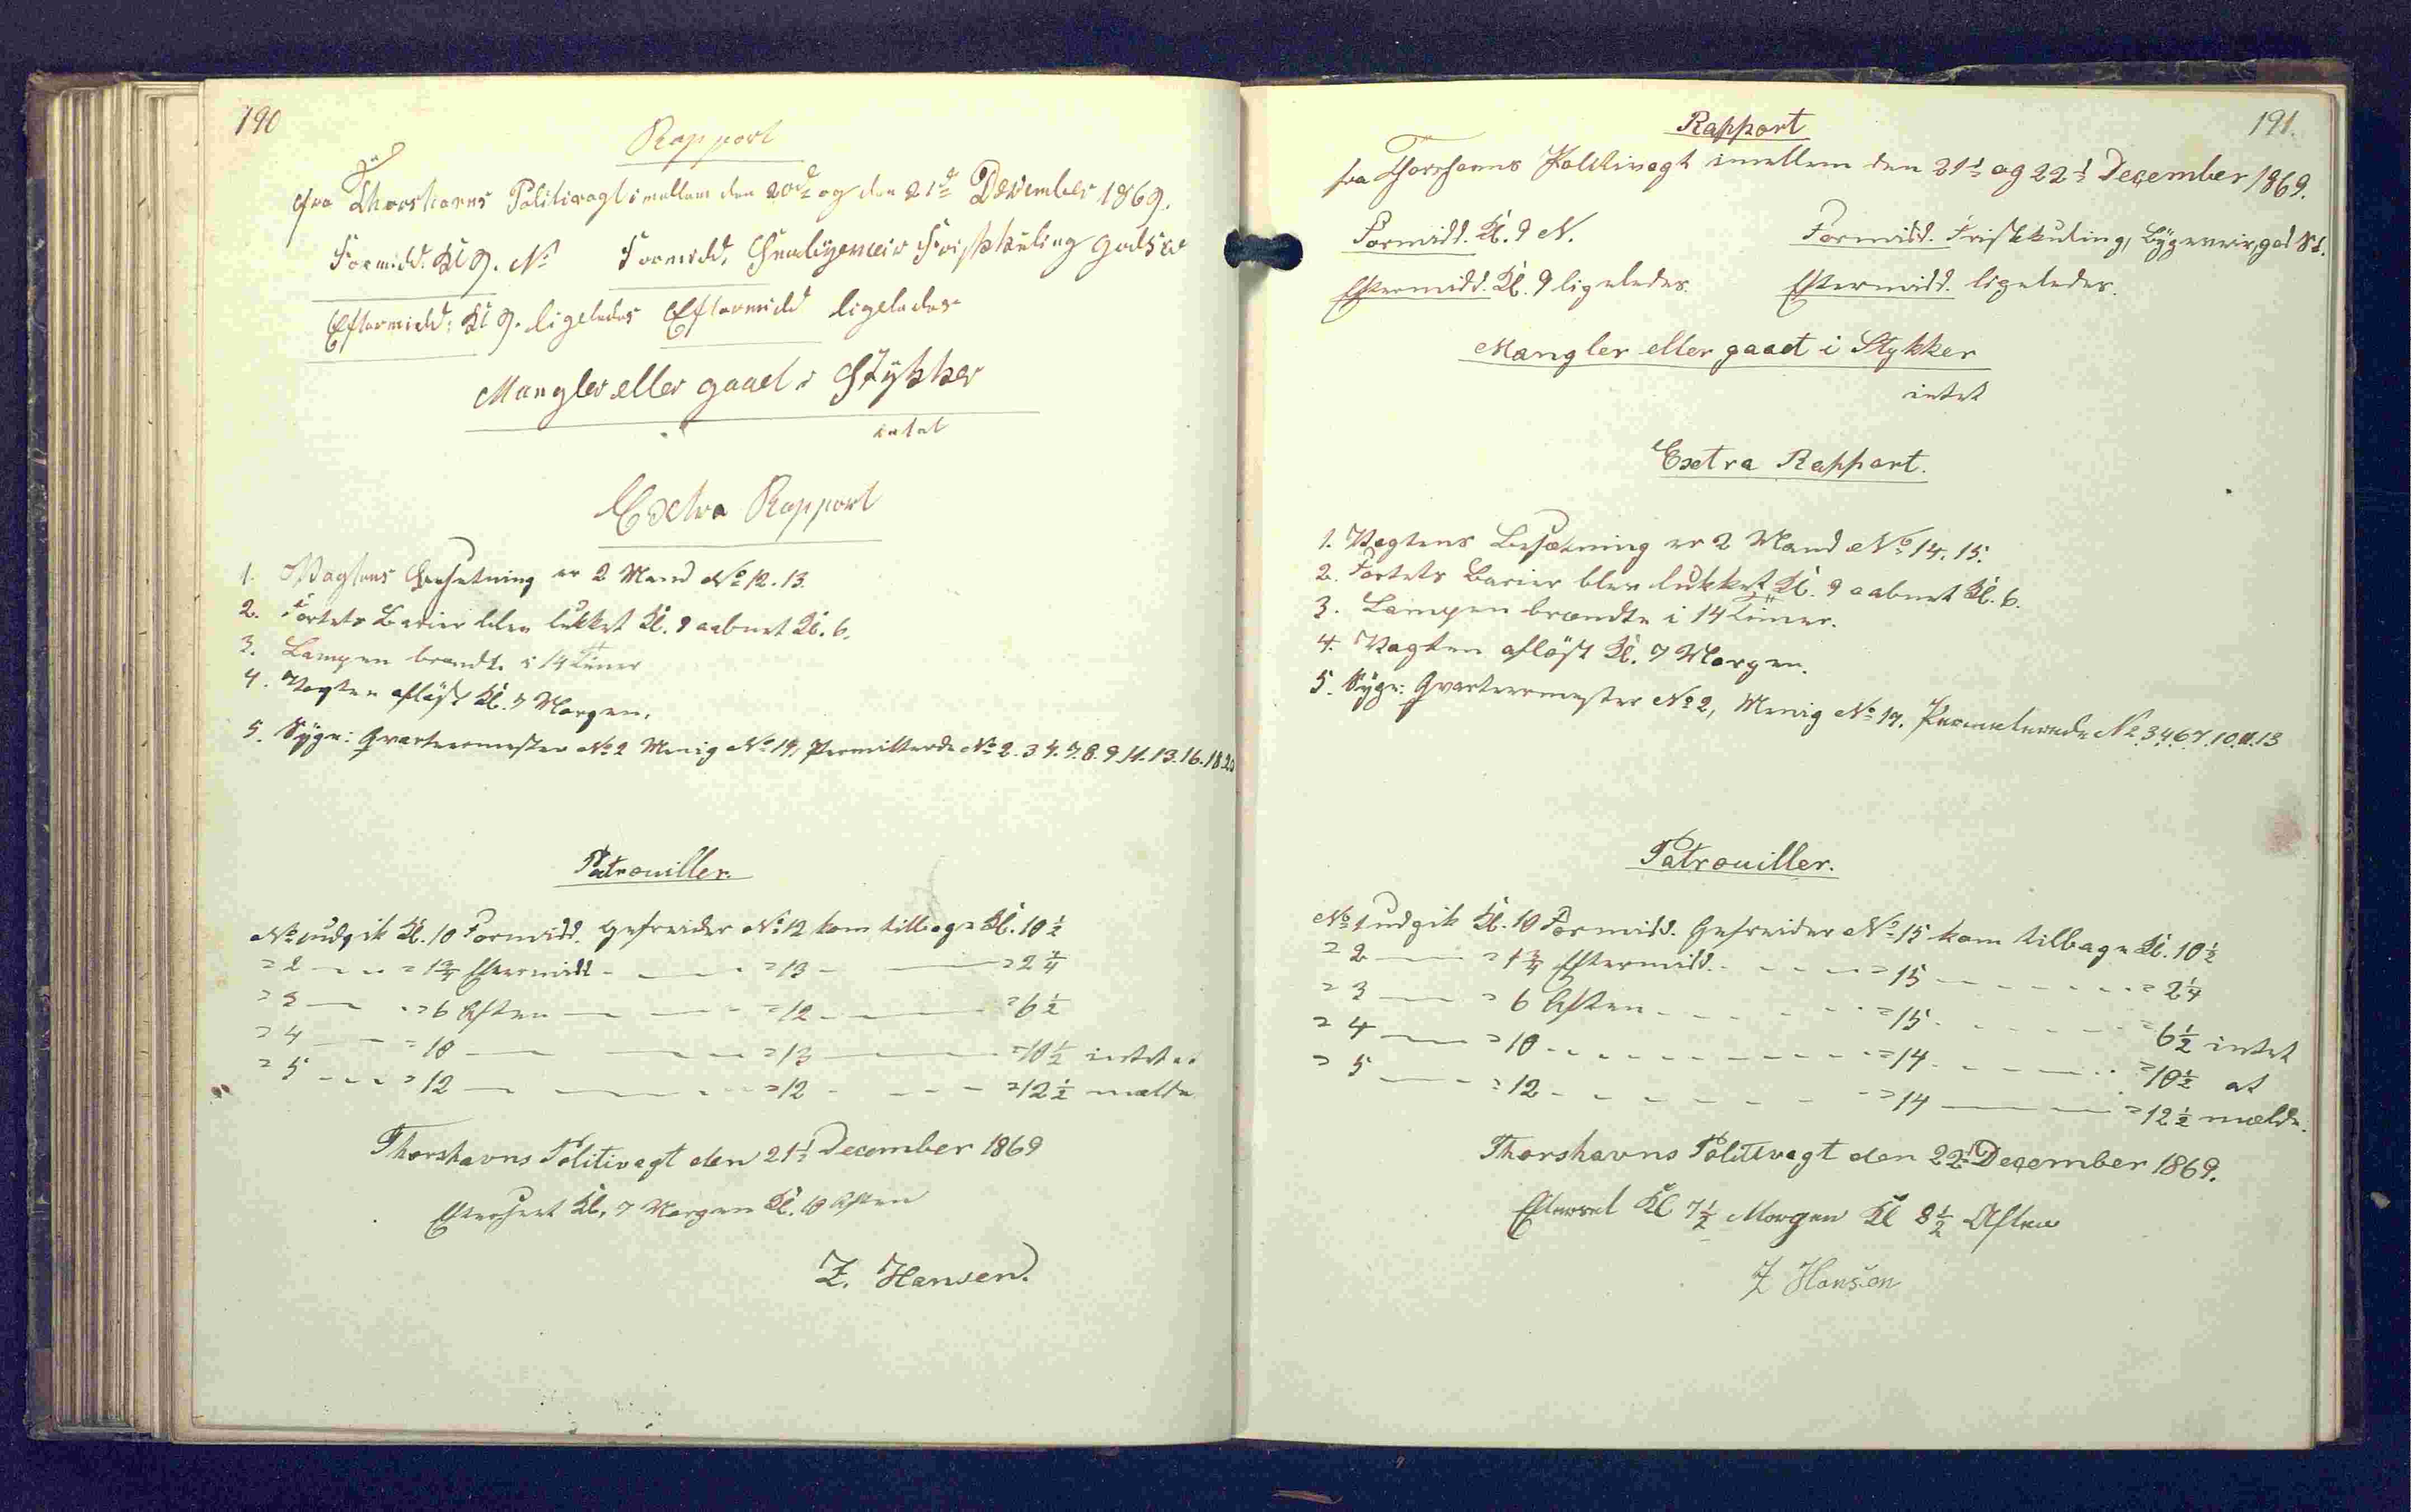 190
Rapport
fra Thorshavns Politivagt imellem den 20de og den 21de December 1869.
Formidd. Kl 9. N. Formidd. Friskkuling god
Eftermidd: Kl 9. ligeledes Eftermidd ligeledes
Mangler eller gaaet i Stykker
intet
Extra Rapport
1. Vagtens Besetning er 2 Mand No 12. 13.
2. Fortets Barier blev lukket Kl. 9 aabnet Kl. 6.
3. Lampen brændte i 14 Timer
4. Vagten afløst Kl. 7 Morgen.
5. Syge: Qvarteermester No 2 Menig No 17, Permitterede No 2. 3 4. 7. 8. 9. 11. 13. 16. 18 20
Patrouiller.
No 1 udgik Kl. 10 Formidd. Gefreider No 12 kom tilbage Kl. 10 1/2
= 2 — = 1 3/4 Eftermidd — = 13 — = 2 1/4
= 3 — = 6 Aften — = 12 — = 6 1/2
= 4 — = 10 — = 13 — = 10 1/2 intet at
= 5 — = 12 — = 12 — = 12 1/2 melde
Thorshavns Politivagt den 21d December 1869
Efterseet Kl. 7 Morgen Kl. 10 Aften
Z. Hansen.
191.
Rapport
fra Thorshavns Politivagt imellem den 21d og 22d December 1869.
Formidd. Kl. 9 N. Formidd. Friskkuling, Bygeveir, god St.
Eftermidd. Kl. 9 ligeledes. Eftermidd. ligeledes.
Mangler eller gaaet i Stykker
intet
Extra Rapport.
1. Vagtens Besætning er 2 Mand No 14. 15.
2. Fortets Barier blev lukket Kl. 9 aabnet Kl. 6.
3. Lampen brændte i 14 Timer.
4. Vagten afløst Kl. 7 Morgen.
5. Syge: Qvarteermester No 2, Menig No 17. Permitterede No 2. 3. 4. 6. 7. 10. 11. 13
Patrouiller.
No 1 udgik Kl. 10 Formidd. Gefreider No 15 kom tilbage Kl. 10 1/2
= 2 — = 1 3/4 Eftermidd. — = 15 — = 2 1/4
= 3 — = 6 Aften — = 15 — = 6 1/2 intet
= 4 — = 10 — = 14 — = 10 1/2 at
= 5 — = 12 — = 14 — = 12 1/2 melde.
Thorshavns Politivagt den 22d December 1869.
Efterset Kl 7 1/2 Morgen Kl 8 1/2 Aften
Z Hansen